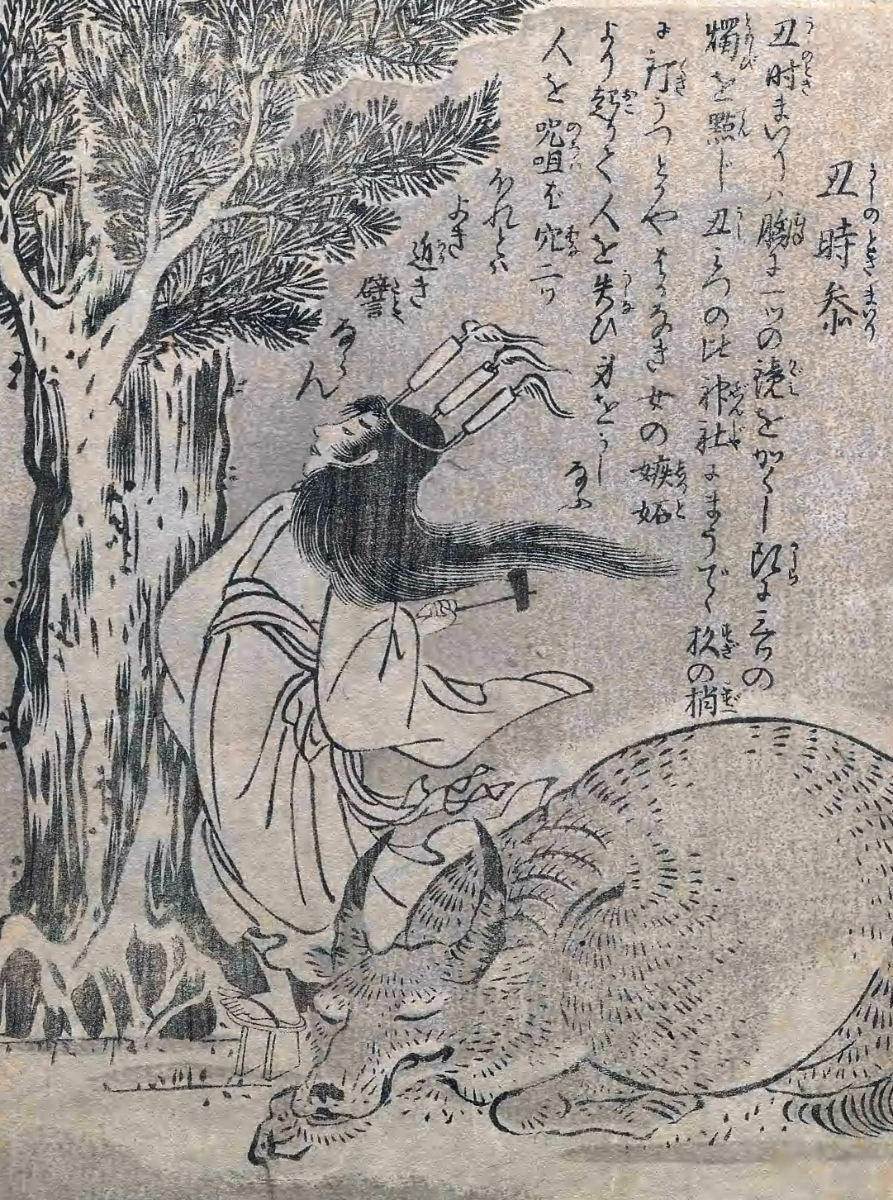 丑時参
うしのときまいり
丑時まいりハ胸に一ツの鏡をかくし頭に三つの
燭を點じ丑みつの比神社にまうでゝ杉の梢
に釘うつとかやはかなき女の嫉妬
より起りて人を失ひ身をうし
なふ
人を呪咀ば穴二つ
ほれとハ
よき
近き
譬
ならん